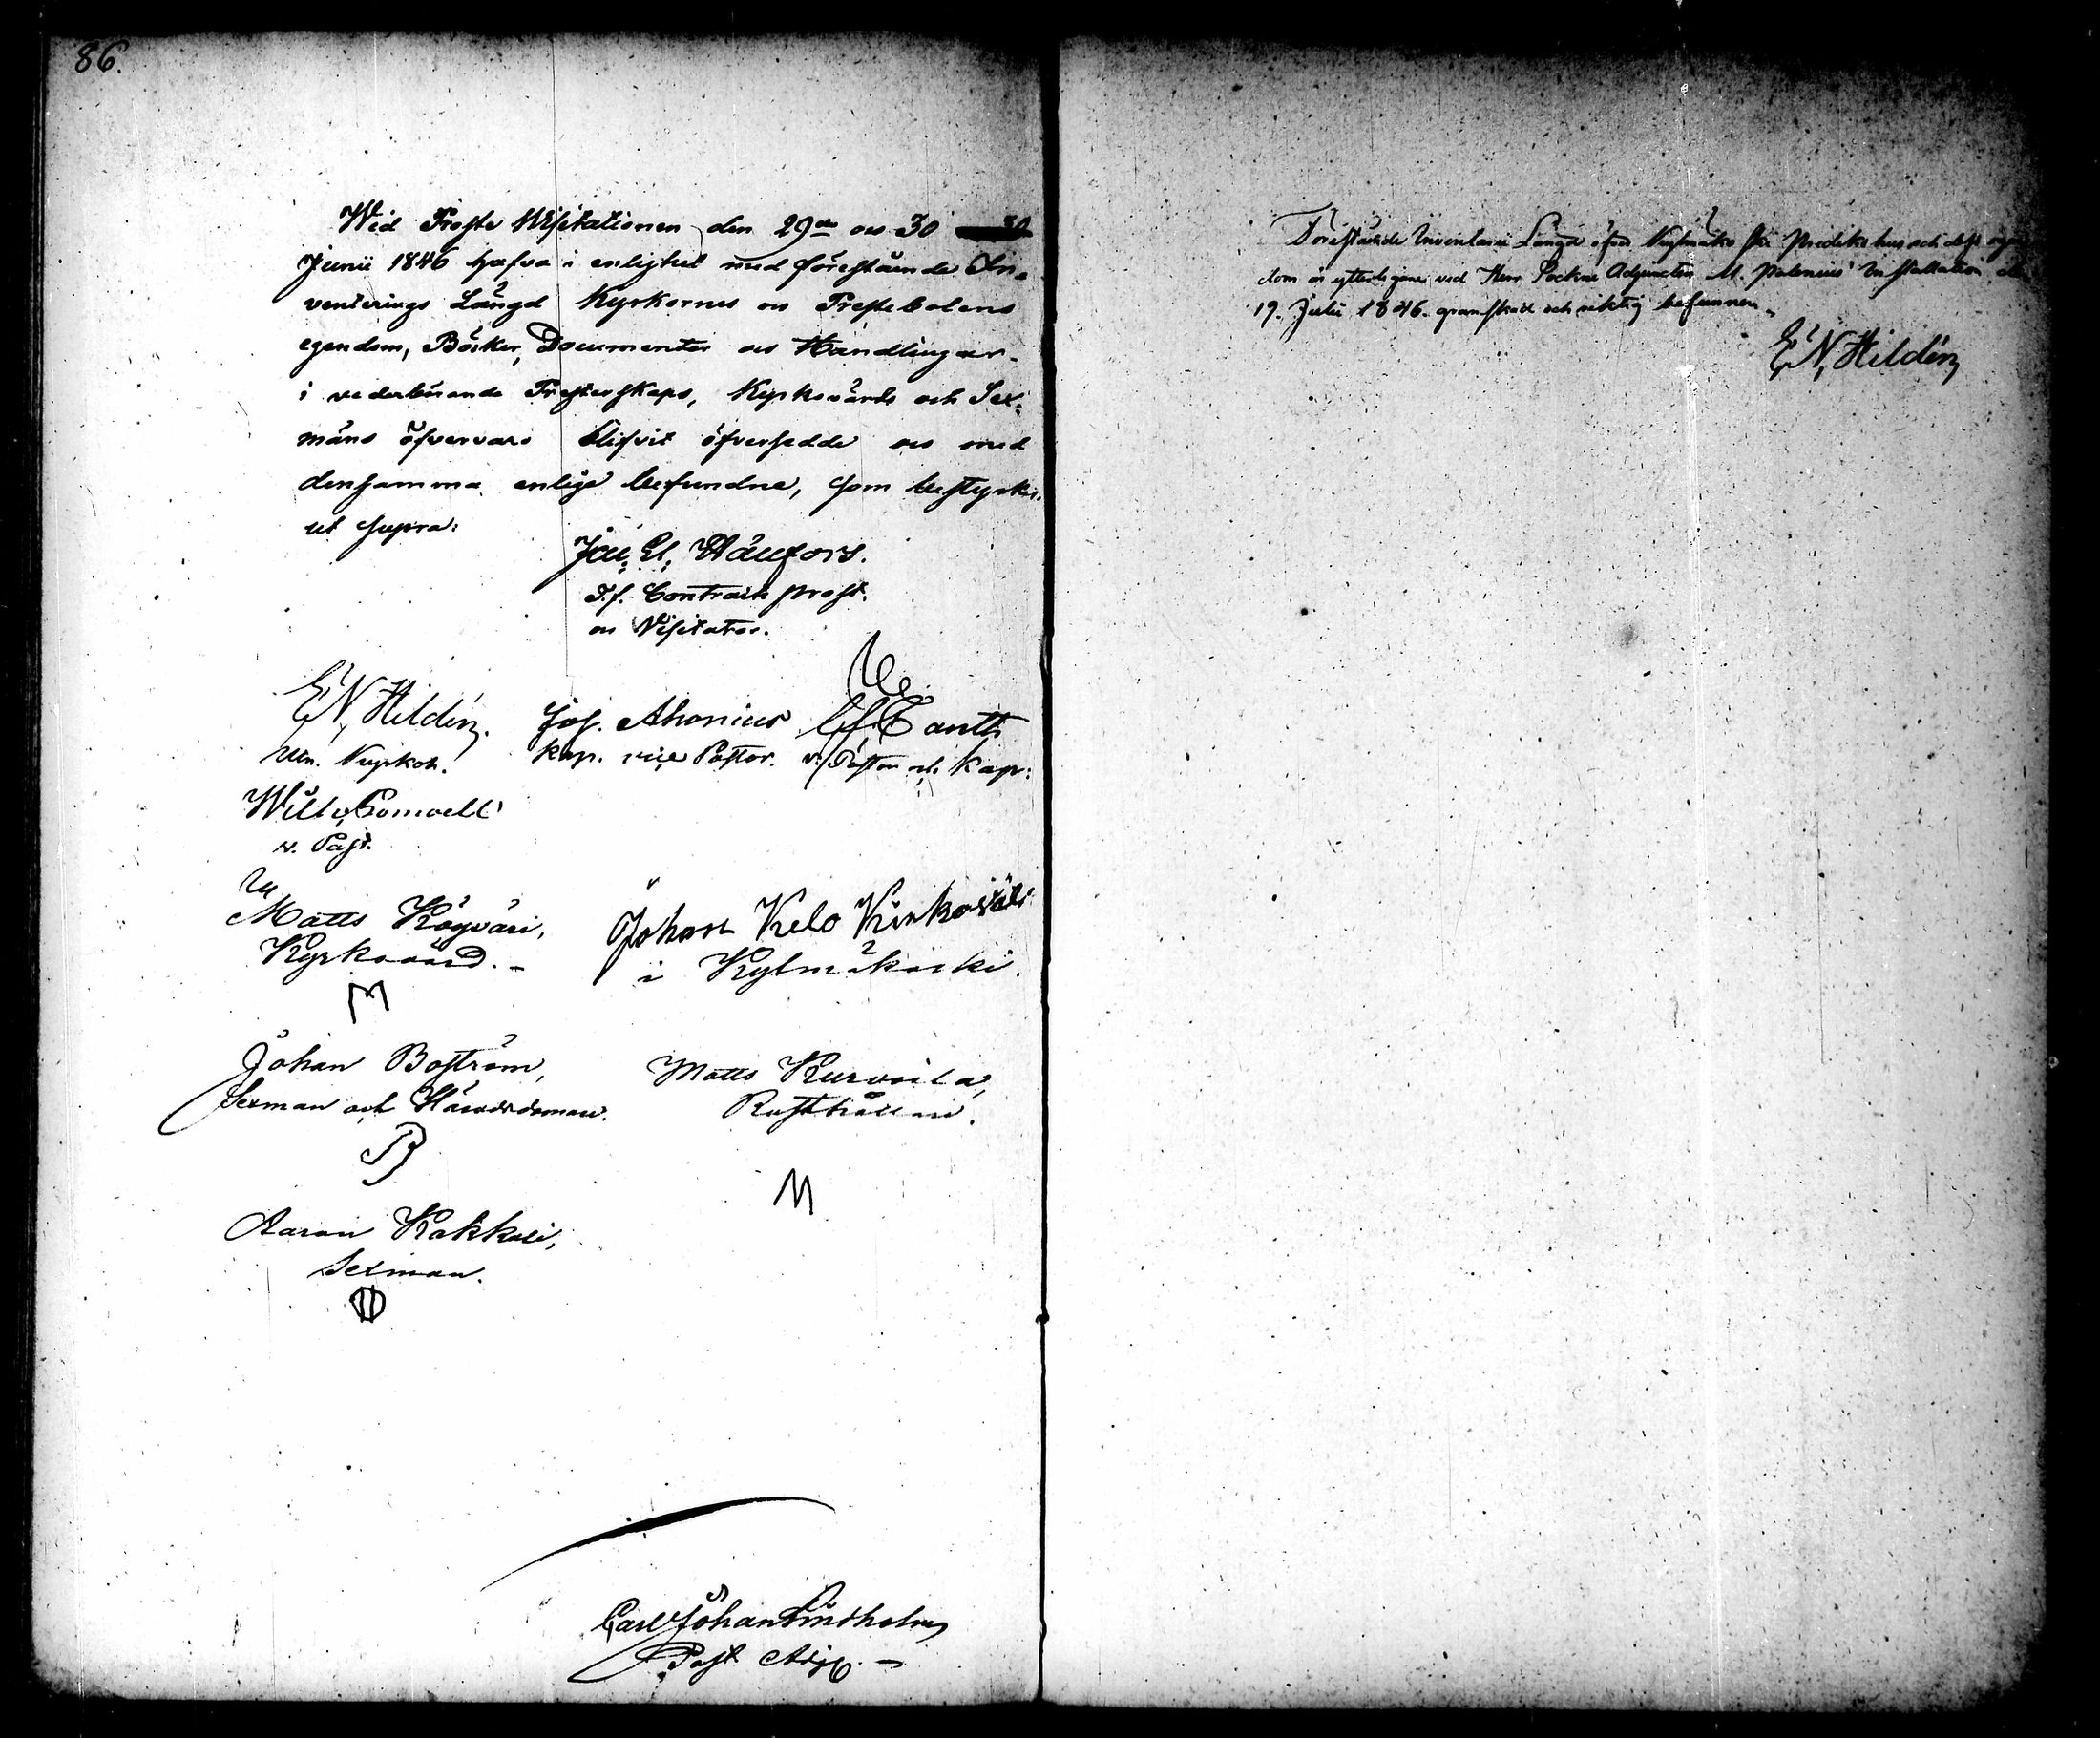 86.
Wid Proste Visitationen den 29de och 30
Junii 1846 hafva i enlighet med förestående In-
venterings Längd Kyrkornes och Prestebolens
egendom, Böcker, Documenter och Handlingar
i vederbörande Presterskaps, Kyrkovärds och Sex-
mäns öfvervaro blifvit öfversedde och med
densamma enlige befundne, som bestyrkes.
ut supra:
T.f. Contracts prost.
och Visitator.
E. N. Hildén. Jos. Ahonius
Kap. vice Pastor. v. Pastor och Kap:
v. Past.
Matts
Kyrkovärd.
Johan Kelo
i Kylmäkoski.
M
Johan Boström, Matts Kurvoila,
Sexman och Häradsdomare. Rusthållare.
B
M
Aaron Kokkoli,
Sexman.
Carl Johan Lindholm
Past Adj.
Förestående Inventarii Längd öfver Kylmäkoski Predikohus och dess
dom är ytterligare vid Herr Sockne Adjuncten M. Polenius' Installation
19. Julii 1846. granskad och riktig befunnen.
E. N. Hildén